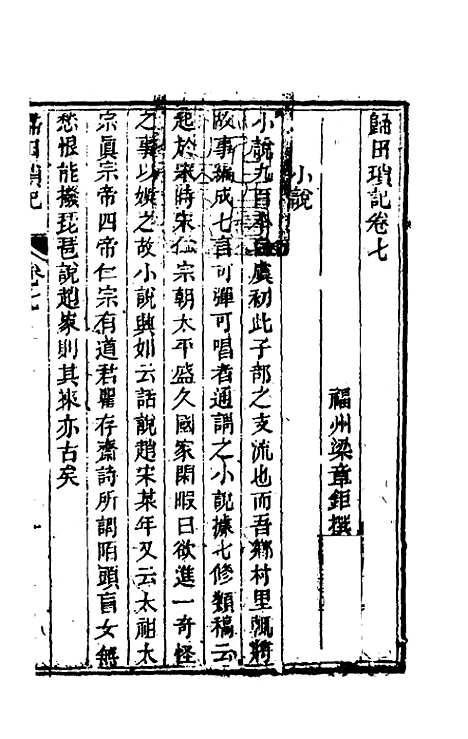 歸田瑣記卷七
福州梁章鉅撰
小說
小說九百本自虞初此子部之支流也而吾鄉村里輒將
故事編成七言可彈可唱者通謂之小說據七修類稿云
起於宋時宋仁宗朝太平盛久國家閑暇日欲進一奇怪
之事以娛之故小說興如云話說趙宋某年又云太祖太
宗眞宗帝四帝仁宗有道君瞿存齋詩所謂陌頭盲女無
愁恨能撥琵琶說趙家則其來亦古矣
歸田瑣記 卷七